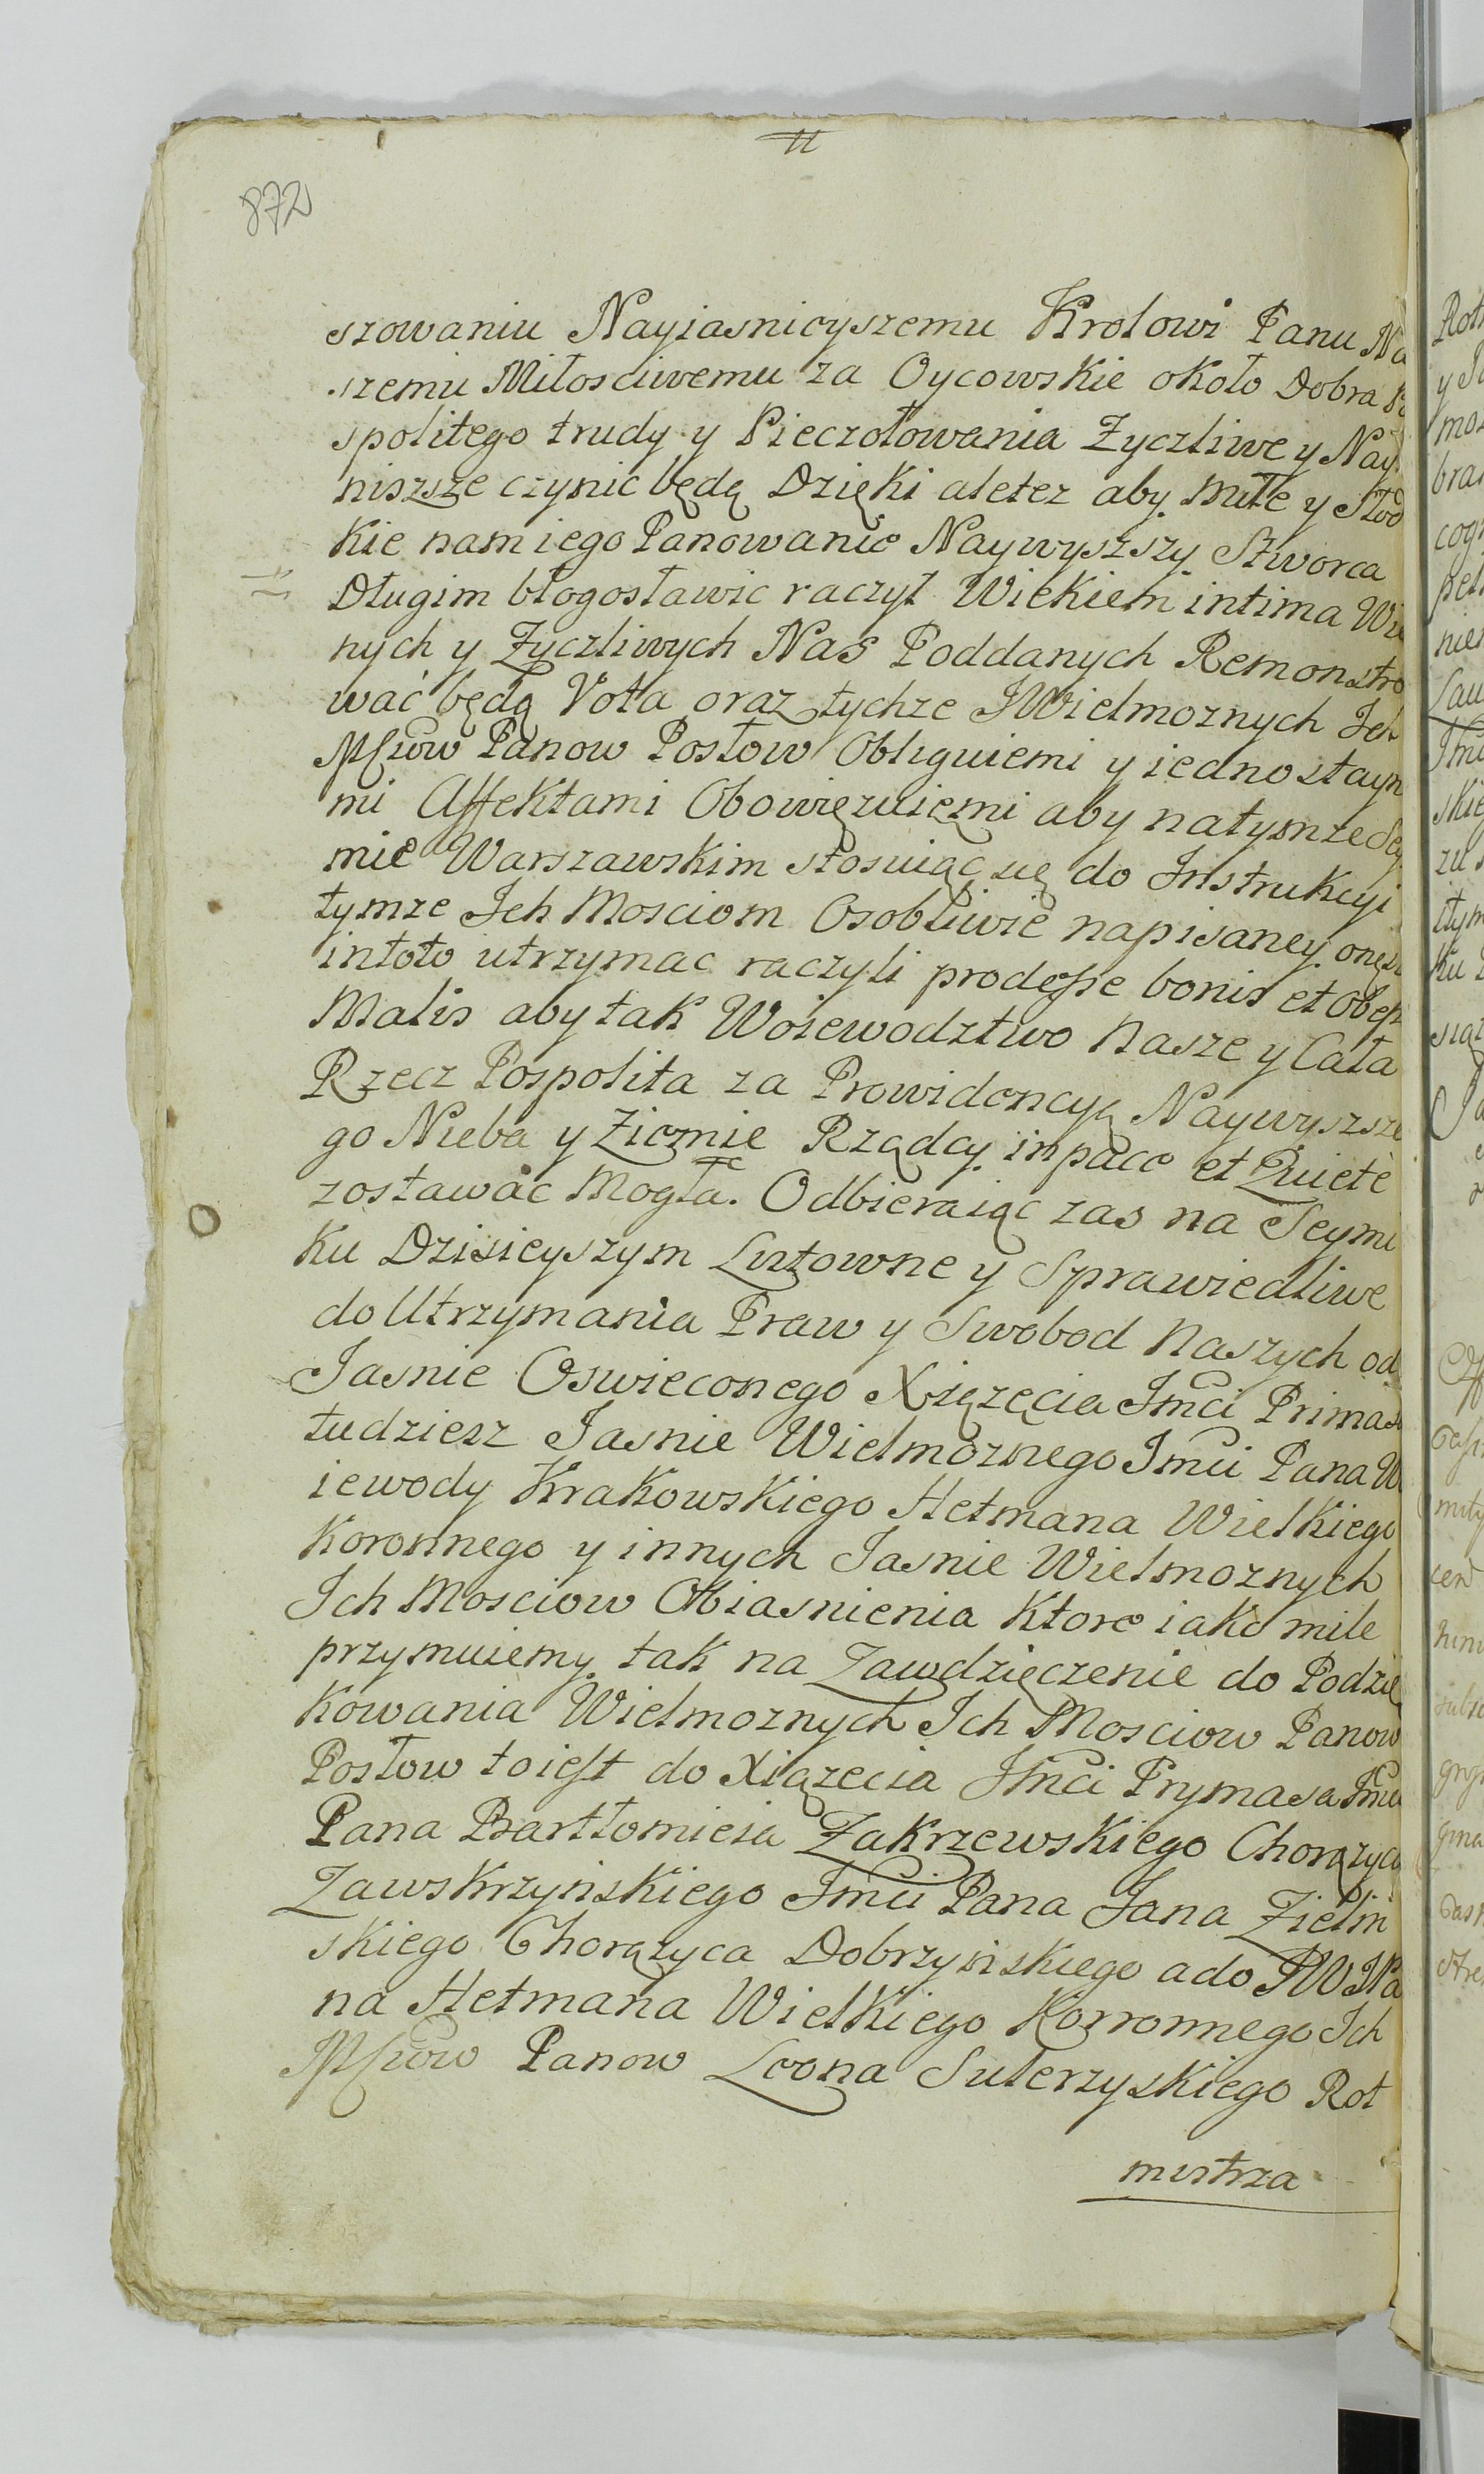 11
872
szowaniu Nayiasnieyszemu Krolowi Panu Na
szemu Miłosciwemu za Oycowskie około Dobra Po
spolitego trudy y Pieczołowania Zyczliwe y Nay
nizsze czynic będą Dzięki aletez aby Miłe y Słod
kie nam iego Panowanie Naywyszszy Stworca
Długim błogosławic raczył Wiekiem intima Wie
nych y Zyczliwych Nas Poddanych Remonstro
wać będą Vota oraz tychze JWielmoznych Ich
Mciow Panow Posłow Obliguiemi y iednostayn
mi Affektami Obowięzuięmi aby natymze Sey
mie Warszawskim stosuiąc się do Instrukcyi
tymze Ich Mosciom Osobliwie napisaney onęz
intoto utrzymac raczyli prodesse bonis et Obess
Malis aby tak Woiewodztwo Nasze y Cała
Rzecz Pospolita za Prowidencyą Naywyszsze
go Nieba y Ziemie Rządcy in pace et Quiete
zostawać Mogła. Odbieraiąc zas na Seymi
ku Dzisieyszym Listowne y Sprawiedliwe
do Utrzymania Praw y Swobod Naszych od
Jasnie Oswieconego Xięzęcia Jmci Primas
tudziesz Jasnie Wielmoznego Jmci Pana Wo
iewody Krakowskiego Hetmana Wielkiego
Koronnego y innych Jasnie Wielmoznych
Ich Mosciow Obiasnienia Ktore iako mile
przymuiemy tak na Zawdzięczenie do Podzię
kowania Wielmoznych Ich Mosciow Panow
Posłow toiest do Xiązecia Jmci Prymasa Jmci
Pana Bartłomieia Zakrzewskiego Chorązyca
Zawskrzyńskiego Jmci Pana Jana Zielin
skiego Chorązyca Dobrzyńskiego a do JWJPa
na Hetmana Wielkiego Korronnego Ich
Mciow Panow Leona Sulerzyskiego Rot
mistrza